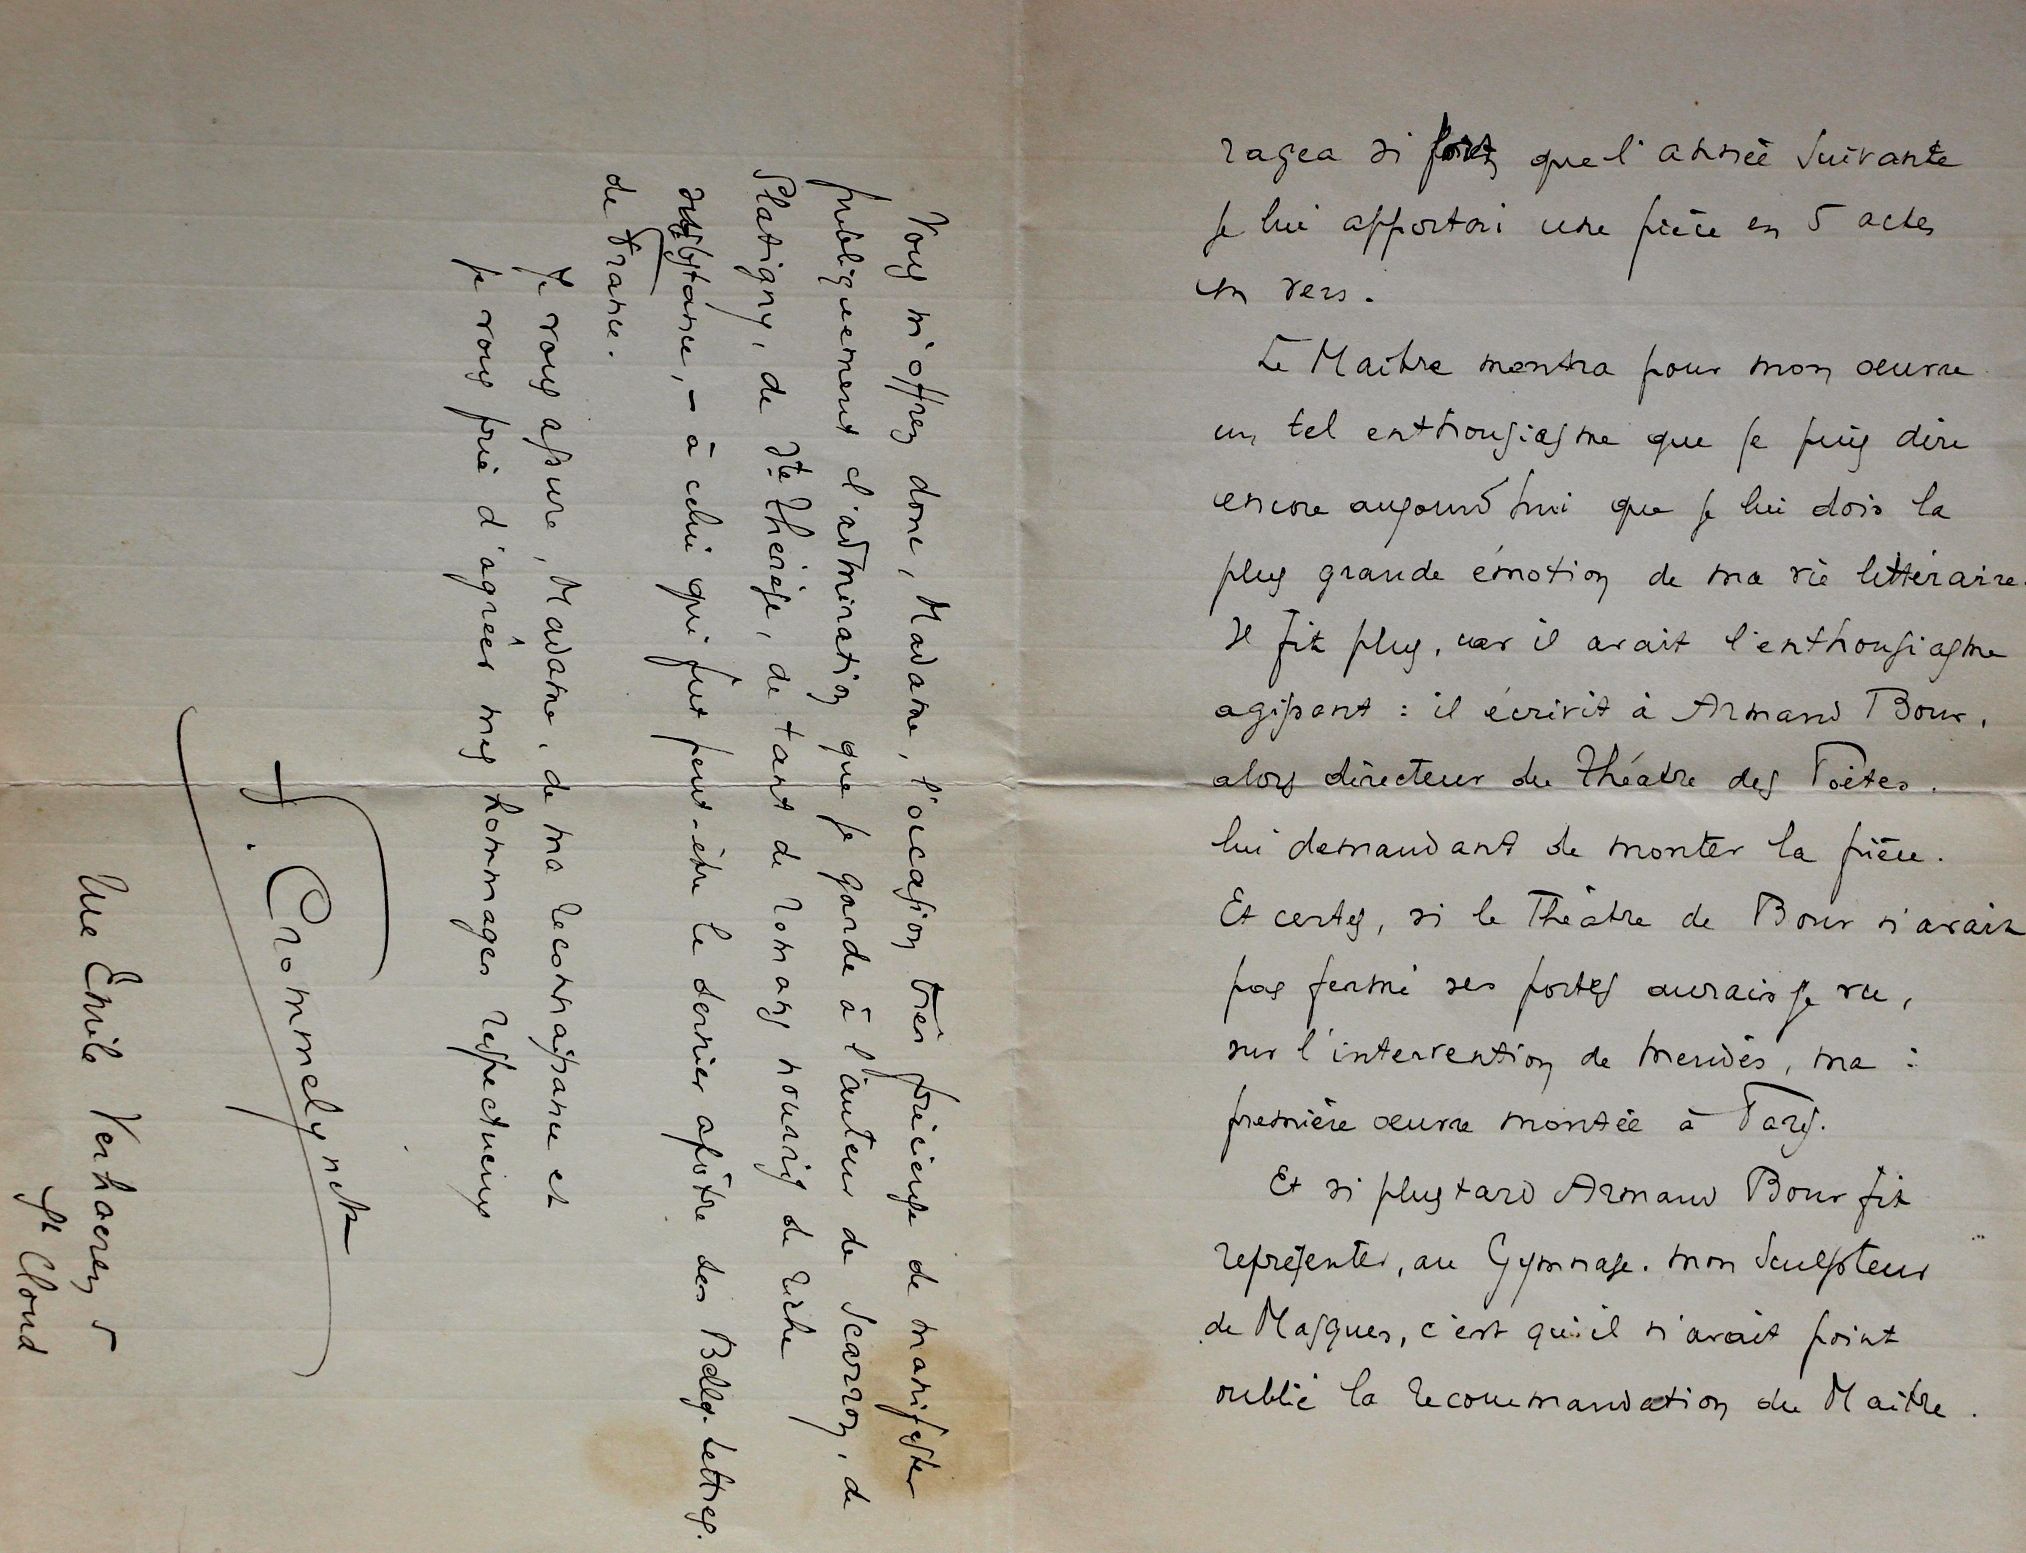 ragea si fort que l'année suivante
je lui apportai une pièce en 5 actes
en vers.
Le Maître montra pour mon œuvre
un tel enthousiasme que je puis dire
encore aujourd'hui que je lui dois la
plus grande émotion de ma vie littéraire.
Il fit plus, car il avait l'enthousiasme
agissant : il écrivit à Armand Bour,
alors directeur du Théâtre des Poètes.
lui demandant de monter la pièce.
Et certes, si le Théâtre de Bour n'avait
pas fermé ses portes aurais je vu,
sur l'intervention de Mendès, ma :
première œuvre montée à Paris.
Et si plus tard Armand Bour fit
représenter, au Gymnase. mon Sculpteur
de Masques, c'est qu'il n'avait point
oublié la recommandation du Maître.
Vous m'offrez donc, Madame, l'occasion très précieuse de manifester
publiquement l'admiration que je garde à l'auteur de Scarron, de
Glatigny, de Ste Thérèse, de tant de romans nourris de riche
substance, - à celui qui fut peut-être le dernier apôtre des Belles-Lettres.
de France.
Je vous assure, Madame, de ma reconnaissance et
je vous prie d'agréer mes hommages respectueux
F. Crommelynck
Rue Emile Verhaeren 5
St Cloud